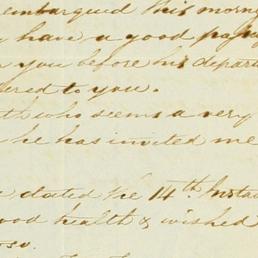 embarqued this morn
have a good pa
you before his depar
ered to you.
th who seems a very
he has invited me
dated the 14th Insta
ood health & wished